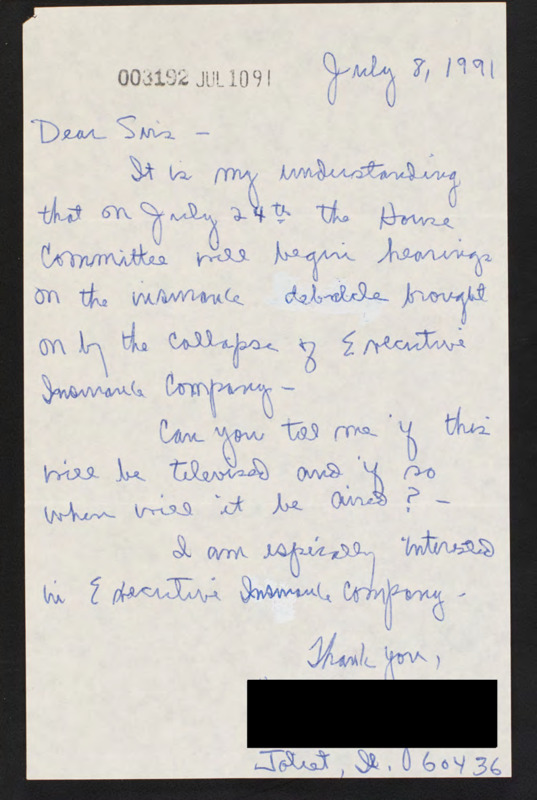 003192 JUL 10 91
July 8, 1991
Dear Sirs -
It is my understanding
that on July 24th the House
Committee will begin hearings
on the insurance debacle brought
on by the collapse of Executive
Insurance Company -
Can you tell me if this
will be televised and if so
when will it be aired? -
I am espically interested
in Executive Insurance Company -
Thank you,
Joliet, Il. 60436